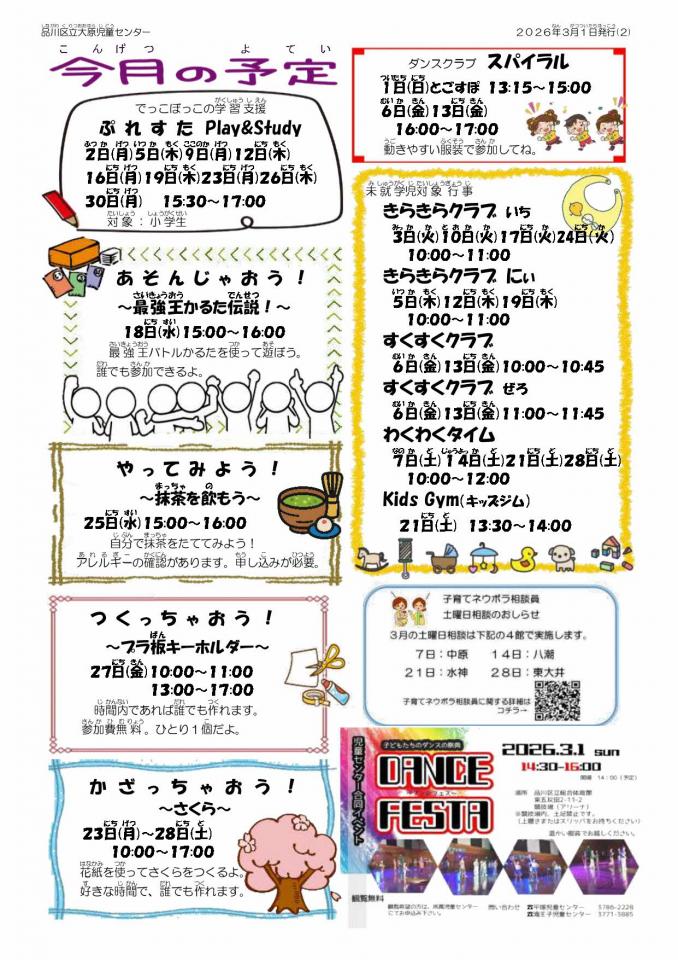 品川区立大原児童センター
2026年3月1日発行(2)
今月の予定
でっこぼっこの学習支援
ぷれすた Play&Study
2日(月)5日(木)9日(月)12日(木)
16日(月)19日(木)23日(月)26日(木)
30日(月) 15:30～17:00
対象：小学生
あそんじゃおう！
～最強王かるた伝説！～
18日(水)15:00～16:00
最強王バトルかるたを使って遊ぼう。
誰でも参加できるよ。
やってみよう！
～抹茶を飲もう～
25日(水)15:00～16:00
自分で抹茶をたててみよう！
アレルギーの確認があります。申し込みが必要。
つくっちゃおう！
～プラ板キーホルダー～
27日(金)10:00～11:00
13:00～17:00
時間内であれば誰でも作れます。
参加費無料。ひとり1個だよ。
かざっちゃおう！
～さくら～
23日(月)～28日(土)
10:00～17:00
花紙を使ってさくらをつくるよ。
好きな時間で、誰でも作れます。
ダンスクラブ スパイラル
1日(日)とごすぽ 13:15～15:00
6日(金)13日(金)
16:00～17:00
動きやすい服装で参加してね。
未就学児対象行事
きらきらクラブ いち
3日(火)10日(火)17日(火)24日(火)
10:00～11:00
きらきらクラブ にぃ
5日(木)12日(木)19日(木)
10:00～11:00
すくすくクラブ
6日(金)13日(金)10:00～10:45
すくすくクラブ ぜろ
6日(金)13日(金)11:00～11:45
わくわくタイム
7日(土)14日(土)21日(土)28日(土)
10:00～12:00
Kids Gym(キッズジム)
21日(土) 13:30～14:00
子育てネウボラ相談員
土曜日相談のおしらせ
3月の土曜日相談は下記の4館で実施します。
7日：中原 14日：八潮
21日：水神 28日：東大井
子育てネウボラ相談員に関する詳細は
コチラ→
児童センター合同イベント
子どもたちのダンスの祭典
DANCE
FESTA
2026.3.1 SUN
14:30-16:00
開場 14:00(予定)
場所 品川区立総合体育館
東五反田2-11-2
競技場(アリーナ)
※競技場内、土足禁止です。
(上履きまたはスリッパをお持ちください)
温かい服装でお越しください。
観覧無料
観覧希望の方は、所属児童センターにてお申込み下さい。
問い合わせ ☎平塚児童センター 3786-2228
☎滝王子児童センター 3771-3885